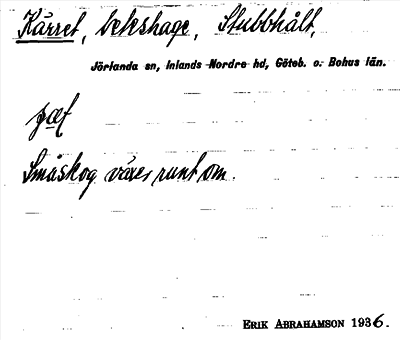 Kärret, beteshage, Stubbhålt,
Jörlanda sn, Inlands Nordre hd, Göteb. o. Bohus län.
Småskog växer runt om.
ERIK ABRAHAMSON 1936.